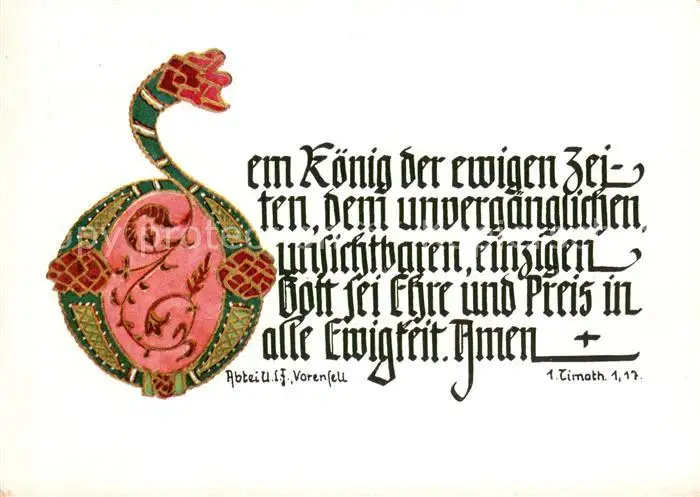 Dem König der ewigen Zei-
ten, dem unvergänglichen,
unsichtbaren, einzigen
Gott sei Ehre und Preis in
alle Ewigkeit. Amen +
Abtei U. L. F., Varensell
1. Timoth. 1, 17.